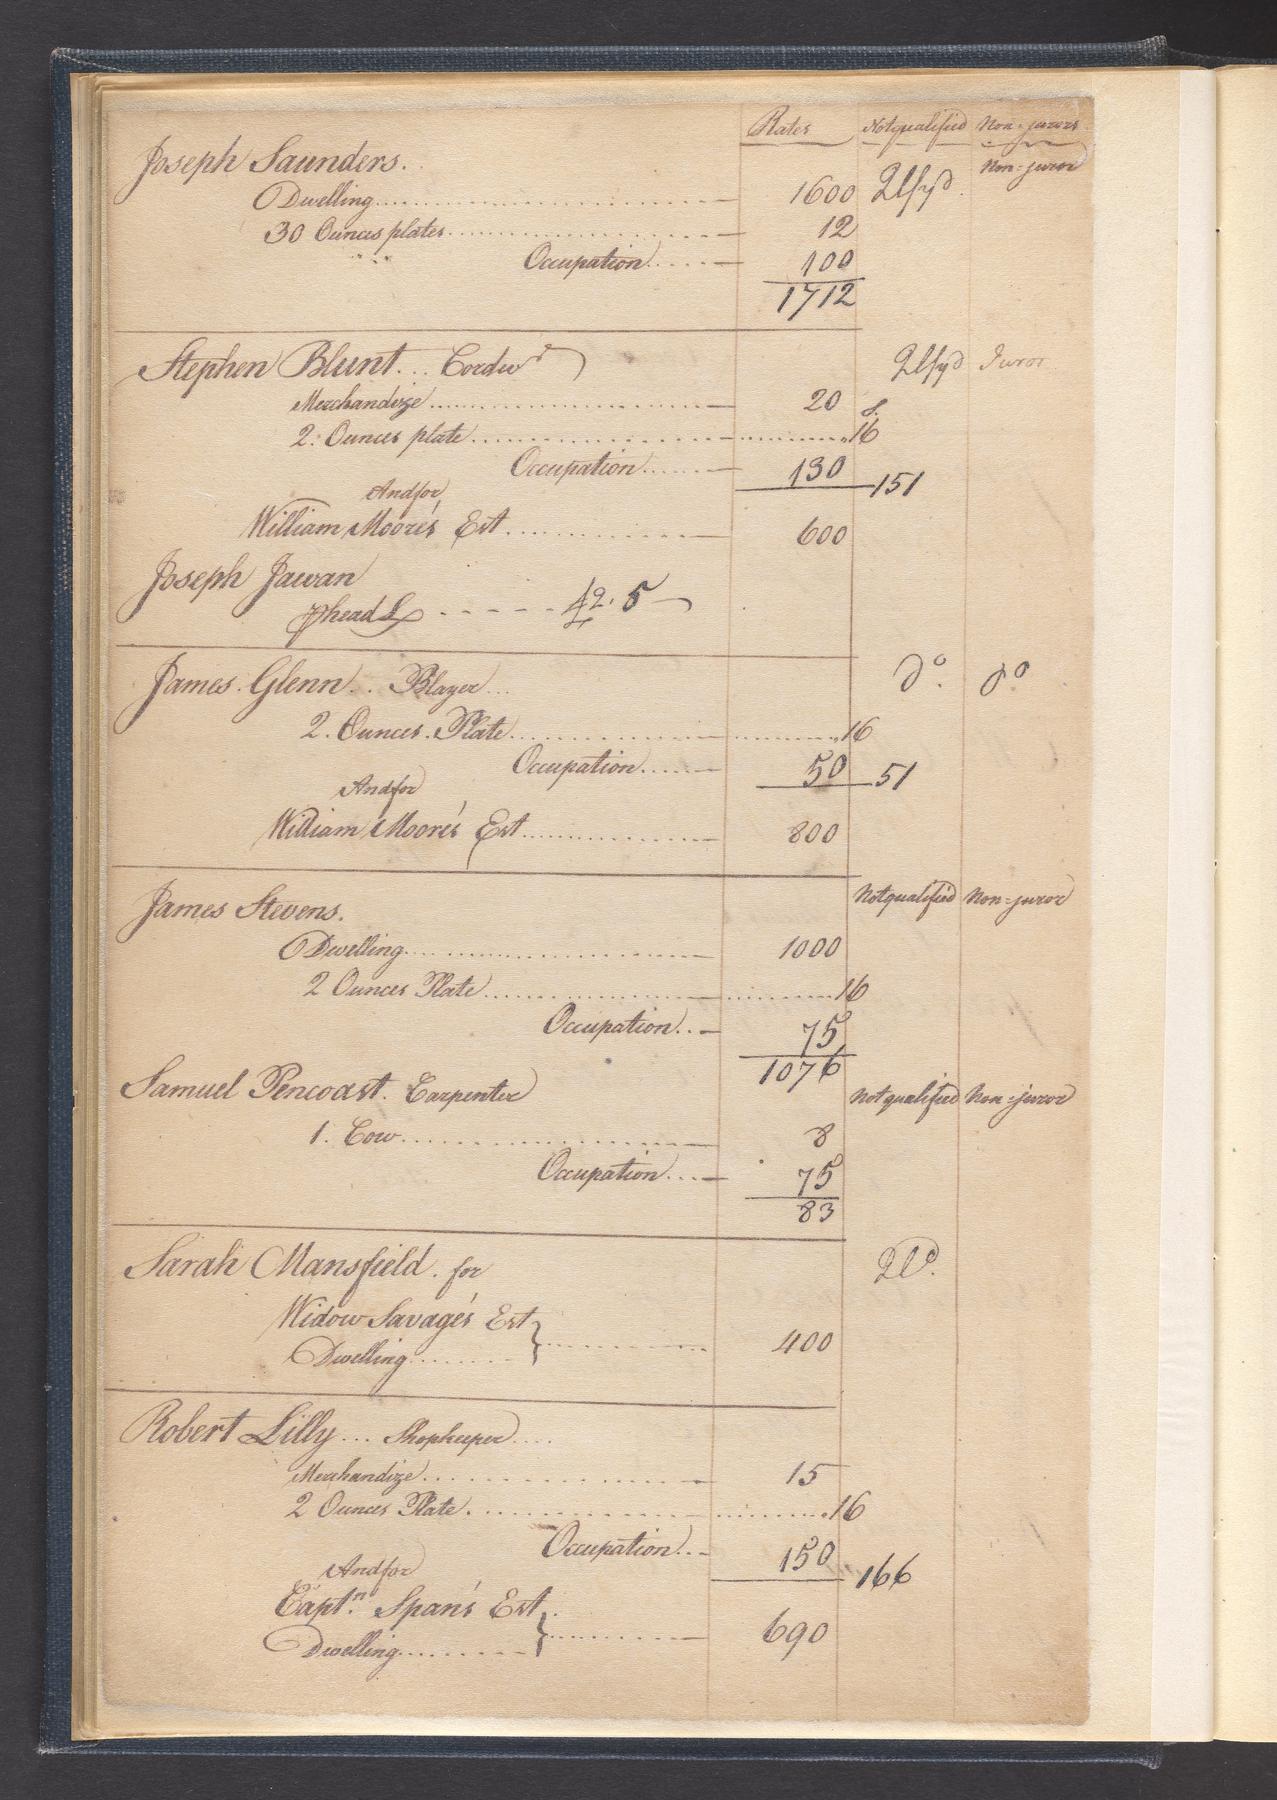 Rates Notqualified Non=jurors
Joseph Saunders. Non=juror
Dwelling 1600 Qlfyd
30 Ounces plates 12
Occupation 100
1712
Stephen Blunt... Cordwr Qlfyd Juror
Merchandize 20 s.
2. Ounces plate 16
Occupation 130 151
Andfor
William Moore's Est 600
Joseph Jawan
phead £ 42.5
James. Glenn.. Blazer... Do. Do
2. Ounces. Plate 16
Occupation 50 51
Andfor
William Moore's Est 800
James Stevens. Notqualified Non=juror
Dwelling 1000
2 Ounces Plate 16
Occupation 75
1076
Samuel Pencoast. Carpenter Notqualified Non=juror
1. Cow 8
Occupation 75
83
Sarah Mansfield. for
Widow Savage's Est
Dwelling 400
Robert Lilly... Shopkeeper....
Merchandize 15
2 Ounces Plate. 16
Occupation 150 166
Andfor
Captn. Span's Est.
Dwelling 690